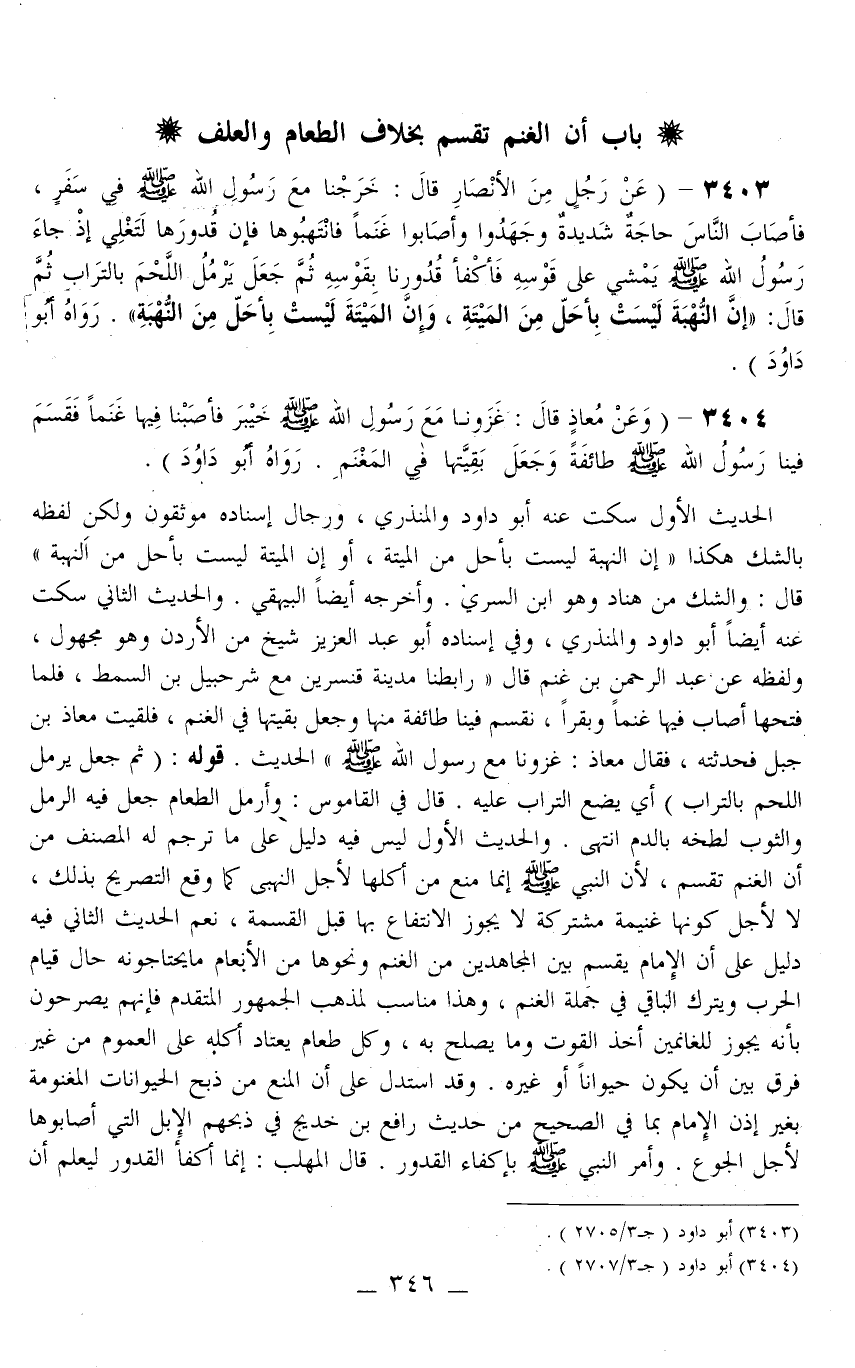 ❋ باب أن الغنم تقسم بخلاف الطعام والعلف ❋
٣٤٠٣ - ( عَنْ رَجُلٍ مِنَ الأَنْصَارِ قالَ : خَرَجْنا معَ رَسُولِ الله ﷺ فِي سَفَرٍ ،
فأصَابَ النَّاسَ حاجَةٌ شَديدةٌ وجَهَدُوا وأصَابوا غَنَماً فانْتَهَبُوها فإن قُدورَها لَتَغْلِي إذْ جاءَ
رَسُولُ الله ﷺ يَمْشي على قَوْسِهِ فَأكْفأ قُدُورنا بِقَوْسِهِ ثُمَّ جَعَلَ يَرْمُلُ اللَّحْمَ بالترَابِ ثُمَّ
قالَ: «إنَّ النُّهْبَةَ لَيسَتْ بِأحَلّ مِنَ المَيْتَةِ ، وَإنَّ المَيْتَةَ لَيْستْ بِأحَلّ مِنَ النُّهْبَةِ» . رَوَاهُ أبُو
دَاوُدَ ) .
٣٤٠٤ - ( وَعَنْ مُعاذٍ قالَ : غَزَونا مَعَ رَسُولِ الله ﷺ خَيْبَرَ فأصَبْنا فِيها غَنَماً فَقَسَمَ
فينا رَسُولُ الله ﷺ طائفَةً وَجَعَلَ بَقِيَّتها فِي المَغْنَمِ . رَوَاهُ أبُو دَاوُدَ ) .
الحديث الأول سكت عنه أبو داود والمنذري ، ورجال إسناده موثقون ولكن لفظه
بالشك هكذا « إن النهبة ليست بأحل من الميتة ، أو إن الميتة ليست بأحل من النهبة »
قال : والشك من هناد وهو ابن السري . وأخرجه أيضاً البيهقي . والحديث الثاني سكت
عنه أيضاً أبو داود والمنذري ، وفي إسناده أبو عبد العزيز شيخ من الأردن وهو مجهول ،
ولفظه عن عبد الرحمن بن غنم قال « رابطنا مدينة قنسرين مع شرحبيل بن السمط ، فلما
فتحها أصاب فيها غنماً وبقراً ، نقسم فينا طائفة منها وجعل بقيتها في الغنم ، فلقيت معاذ بن
جبل فحدثته ، فقال معاذ : غزونا مع رسول الله ﷺ » الحديث . قوله : ( ثم جعل يرمل
اللحم بالتراب ) أي يضع التراب عليه . قال في القاموس : وأرمل الطعام جعل فيه الرمل
والثوب لطخه بالدم انتهى . والحديث الأول ليس فيه دليل على ما ترجم له المصنف من
أن الغنم تقسم ، لأن النبي ﷺ إنما منع من أكلها لأجل النهبى كما وقع التصريح بذلك ،
لا لأجل كونها غنيمة مشتركة لا يجوز الانتفاع بها قبل القسمة ، نعم الحديث الثاني فيه
دليل على أن الإمام يقسم بين المجاهدين من الغنم ونحوها من الأنعام مايحتاجونه حال قيام
الحرب ويترك الباقي في جملة الغنم ، وهذا مناسب لمذهب الجمهور المتقدم فإنهم يصرحون
بأنه يجوز للغانمين أخذ القوت وما يصلح به ، وكل طعام يعتاد أكله على العموم من غير
فرق بين أن يكون حيواناً أو غيره . وقد استدل على أن المنع من ذبح الحيوانات المغنومة
بغير إذن الإمام بما في الصحيح من حديث رافع بن خديج في ذبحهم الإبل التي أصابوها
لأجل الجوع . وأمر النبي ﷺ بإكفاء القدور . قال المهلب : إنما أكفأ القدور ليعلم أن
(٣٤٠٣) أبو داود ( جـ٢٧٠٥/٣ ) .
(٣٤٠٤) أبو داود ( جـ٢٧٠٧/٣ ) .
— ٣٤٦ —